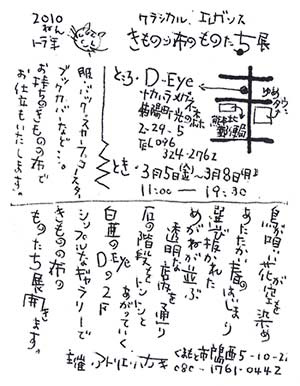 2010
ねん
トラ年
クラシカル エレガンス
きものの布のものたち展
ところ・D-Eye
ナカノメガネ
菊陽町光の森
2-29-5
Tel 096
324-2762
とき・3月5日(金)~3月8日(月)
11:00 — 19:30
服・バッグ・スカーフ・コースター
ブックカバーなど…。
お持ちのきものの布で
お仕立もいたします。
ゆめタウン
熊本北
郵便局
鳥が唄い花が空を染め
あたたかい春のはじまり
選び抜かれた
めがねが並ぶ
透明な店内を通り
石の階段をトントンと
あがっていく
白亜のD-Eyeの2F
シンプルなギャラリーで
きものの布の
ものたち展開きます。
主催・アトリエ・
080-1761-0442